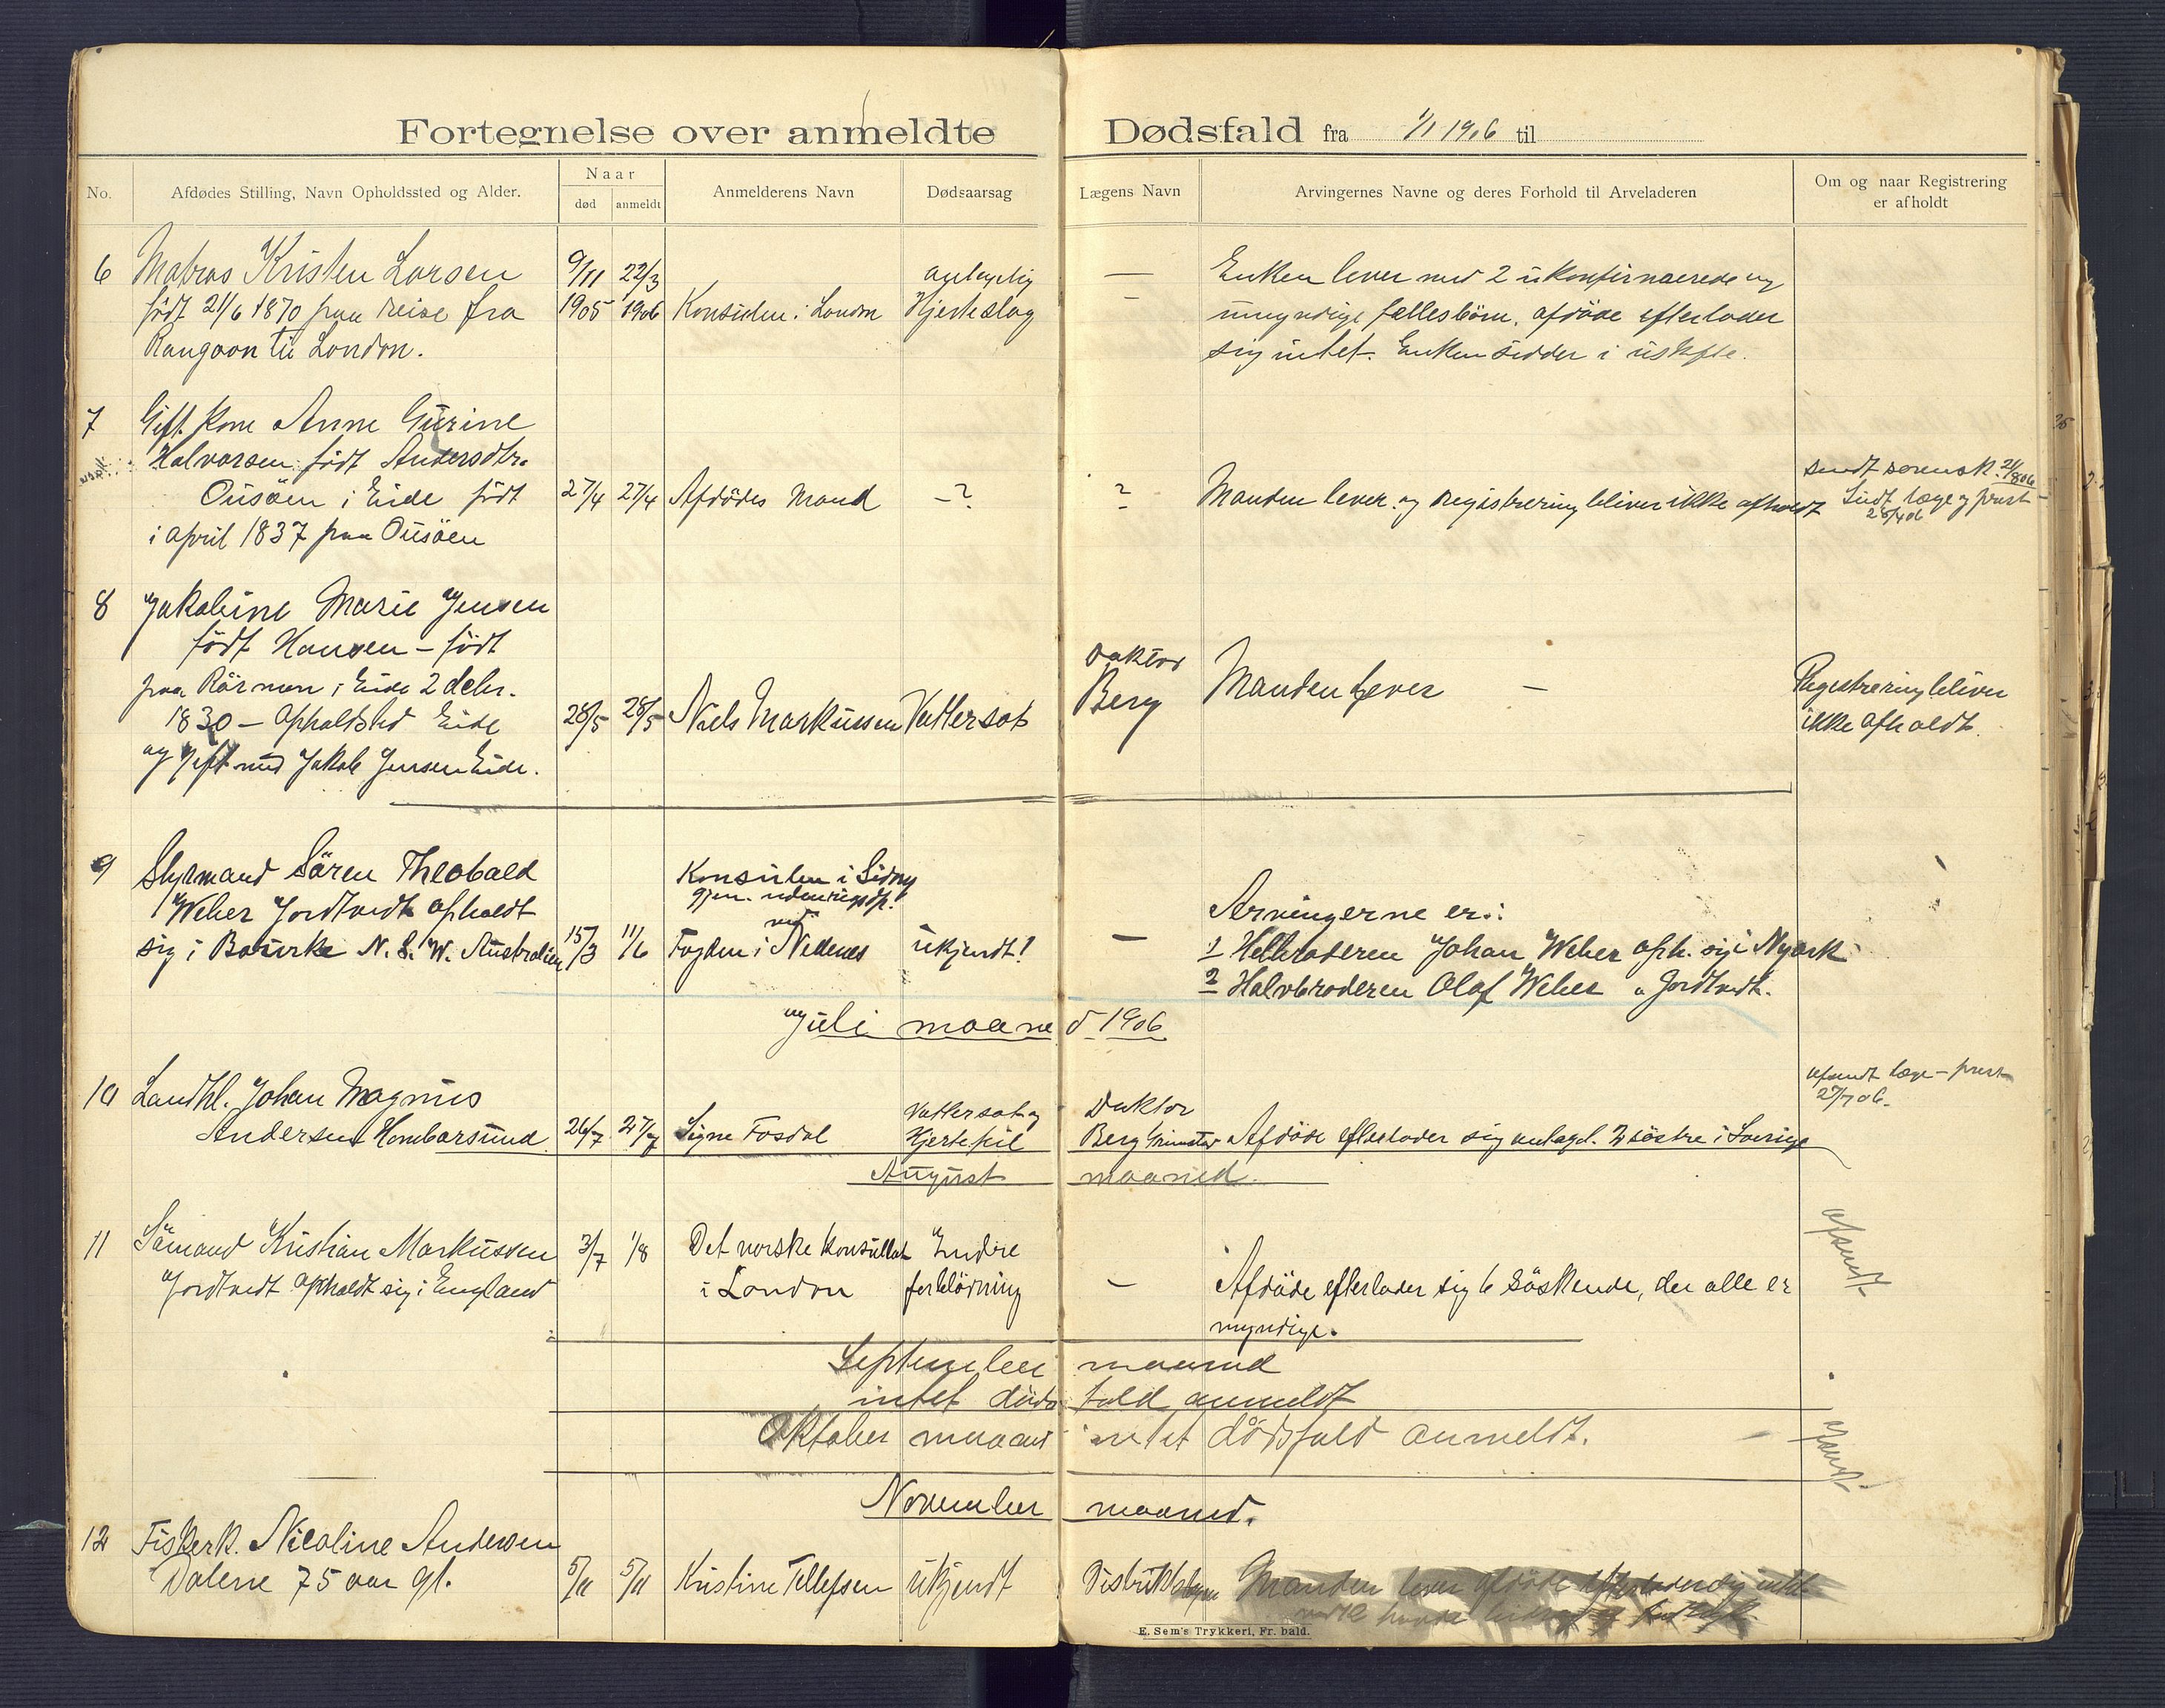 Fortegnelse over anmeldte Dødsfald fra 1/1 1906 til
No.
Afdødes Stilling, Navn Opholdssted og Alder.
Naar
død
anmeldt
Anmelderens Navn
Dødsaarsag
Lægens Navn
Arvingernes Navne og deres Forhold til Arveladeren
Om og naar Registrering
er afholdt
6 Matros Kristen Larsen
født 21/6 1870 paa reise fra
Rangoon til London.
9/11
1905
22/3
1906
Konsulen i London
antagelig
Hjerteslag
—
Enken lever med 2 ukonfirmerede og
umyndige fællesbörn. afdöde efterlader
sig intet. Enken sidder i uskifte.
7 Gift kone Anne Gurine
Halvorsen född Andersdtr.
Ousöen i Eide född
i april 1837 paa Ousöen
27/4 27/4 Afdödes Mand —? ?
Manden lever og registrering bliver ikke afholdt
sendt sorensk.
Sendt læge og prest
28/4 06
8 Jakobine Marie Jensen
född Hansen — född
paa Rörmen i Eide 2 debr.
1830 — Opholdsted Eide
og gift med Jakob Jensen Eide.
28/5 28/5 Niels Markussen Vattersot
Doktor
Berg
Manden lever —
Registrering bliver
ikke afholdt.
9 Styrmand Sören Theobald
Weber Jortveidt opholdt
sig i Bourke N. S. W. Australien
15/3 11/6
Konsulen i Sidney
gjen. udenrigsdp.
ved
Fogden i Nedenes
ukjendt!
—
Arvingerne er:
1 Helbroderen Johan Weber oph. sig i Nyork
2 Halvbroderen Olaf Weber " Jordtvedt.
Juli maaned 1906
10 Landhl. Johan Magnus
Andersen Hombarsund
26/7 27/7 Signe Fosdal
Vattersot og
Hjertefeil
Doktor
Berg Grimstad
Afdöde efterlader sig antagel. 2 söstre i Sverige
afsendt læge — prest
27/7 06.
August maaned.
11 Sömand Kristian Markussen
Jordtvedt opholdt sig i England
3/7 1/8
Det norske konsullat
i London
Indre
forblödning
—
Afdöde efterlader sig 6 söskende, der alle er
myndige.
afsendt
September maaned
intet dödsfald anmeldt
Oktober maaned intet dödsfald anmeldt.
afsendt
November maaned.
12 Fiskerk. Nicoline Andersen
Dalene 75 aar gl.
5/11 5/11 Kristine Tellefsen ukjendt
Distriktslægen
Manden lever afdöde efterlader sig intet
E. Sem's Trykkeri, Fr. hald.